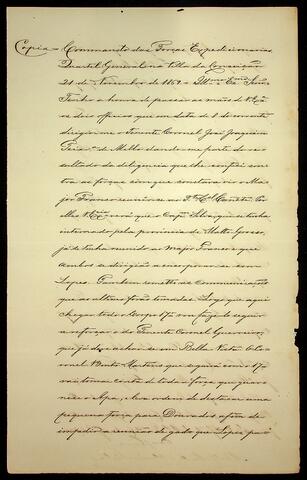 Copia = Commando das Forças Expedicionarias
Quartel General na villa da Conceição
21 de Novembro de 1869 = Illmo e Exmo Snr
Tenho a honra de passar as mãos de V. Exa
os dois officios que em data de 1 do corrente
dirigio me o Tenente Coronel José Joaquim
de Mello dando-me parte do re
sultado da deligencia que lhe confiei con
tra as forças com que constava vir o Ma
jor Franco reunir-se ao Canete.
V. Exa verá que o Capm que se tinha
internado pela provincia de Matto-Grosso,
já se tinha reunido ao Major Franco e que
ambos se dirigião a encorporar-se com
Lopes. Tambem remetto as communicações
que as ultimas forão tomadas. Logo que aqui
chegar todo o Corpo 17º vou faze-lo seguir
a reforçar o do Tenente Coronel Guerreiro,
que já deve achar-se em Bella Vista. O Co
ronel Bento Martins que seguiu com o 17º
vai tomar conta de toda a força que guar
nece o Apa, e leva ordem de destacar uma
pequena força para Dourados afim de
impedir a reunião de gado que Lopes pro